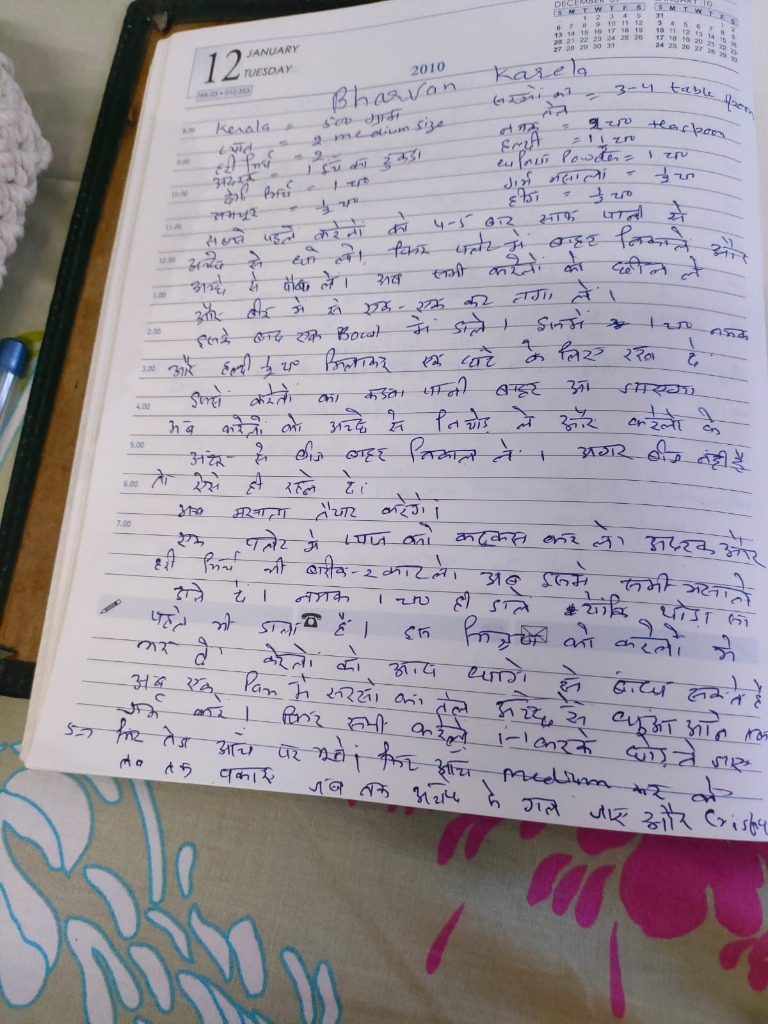 DECEMBER 09
S M T W T F S
1 2 3 4 5
6 7 8 9 10 11 12
13 14 15 16 17 18 19
20 21 22 23 24 25 26
27 28 29 30 31
JANUARY 10
S M T W T F S
31
12 JANUARY
TUESDAY
2010
Bharvan Karela
Kerala = 500 ग्राम
प्याज = 2 medium size
हरी मिर्च = 2
अदरक = 1 इंच का टुकड़ा
मिर्च = 1 चम
अमचूर = ½ चम
सरसों का तेल = 3-4 table spoon
नमक = 2 चम teaspoon
हल्दी = 1½ चम
धनिया Powder = 1 चम
गर्म मसाला = ½ चम
हींग = ½ चम
सबसे पहले करेलों को 4-5 बार साफ पानी से
अच्छे से धो लें। फिर प्लेट में बाहर निकाले और
अच्छे से पोंछ लें। अब सभी करेलों को छील ले
और बीच में से एक-एक कट लगा लें।
इसके बाद एक Bowl में डाले। इसमें 1 चम नमक
और हल्दी ½ चम मिलाकर एक घंटे के लिए रख दे
इससे करेलों का कड़वा पानी बाहर आ जाएगा
अब करेलों को अच्छे से निचोड़ ले और करेलों के
अंदर से बीज बाहर निकाल ले। अगर बीज नहीं है
तो ऐसे ही रहने दे।
अब मसाला तैयार करेंगे।
एक प्लेट में प्याज को कद्दूकस कर ले। अदरक और
हरी मिर्च भी बारीक-2 काट ले। अब इसमें सभी मसाले
डाल दे। नमक 1 चम ही डाले क्योंकि थोड़ा सा
पहले भी डाला है। इस मिश्रण को करेलों में
भर दे। करेलों को आप धागे से बांध सकते है
अब एक Pan में सरसों का तेल अच्छे से धुंआ आने तक
गर्म करे। फिर सभी करेले 1-1 करके छोड़ते जाए
5 फिर तेज आंच पर। फिर आंच medium कर के
तब तक पकाए जब तक अच्छे से गल जाए और Crispy
8.00
9.00
10.00
11.00
1.00
2.00
3.00
4.00
5.00
6.00
7.00